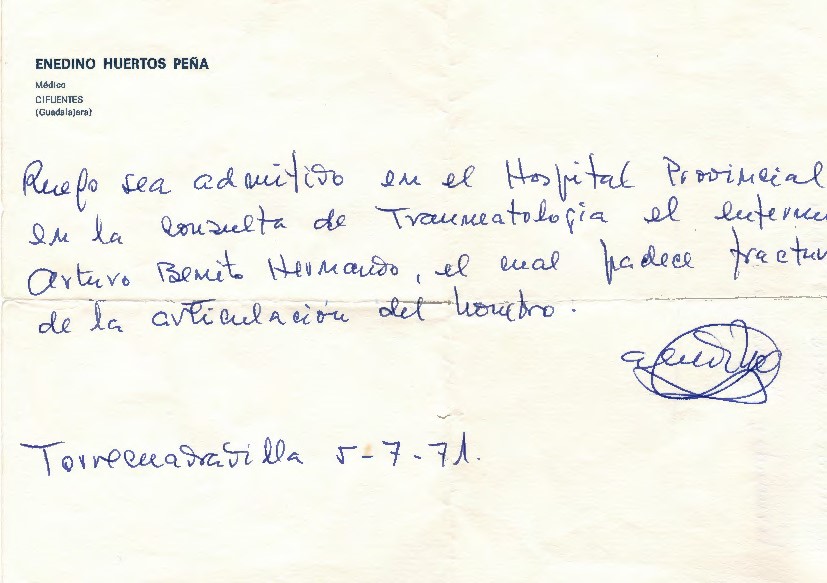 ENEDINO HUERTOS PEÑA
Médico
CIFUENTES
(Guadalajara)
Ruego sea admitido en el Hospital Provincial
en la consulta de Traumatología el enferm
Arturo Benito Hernando, el cual padece fractur
de la articulación del hombro.
Torrecuadradilla 5-7-71.